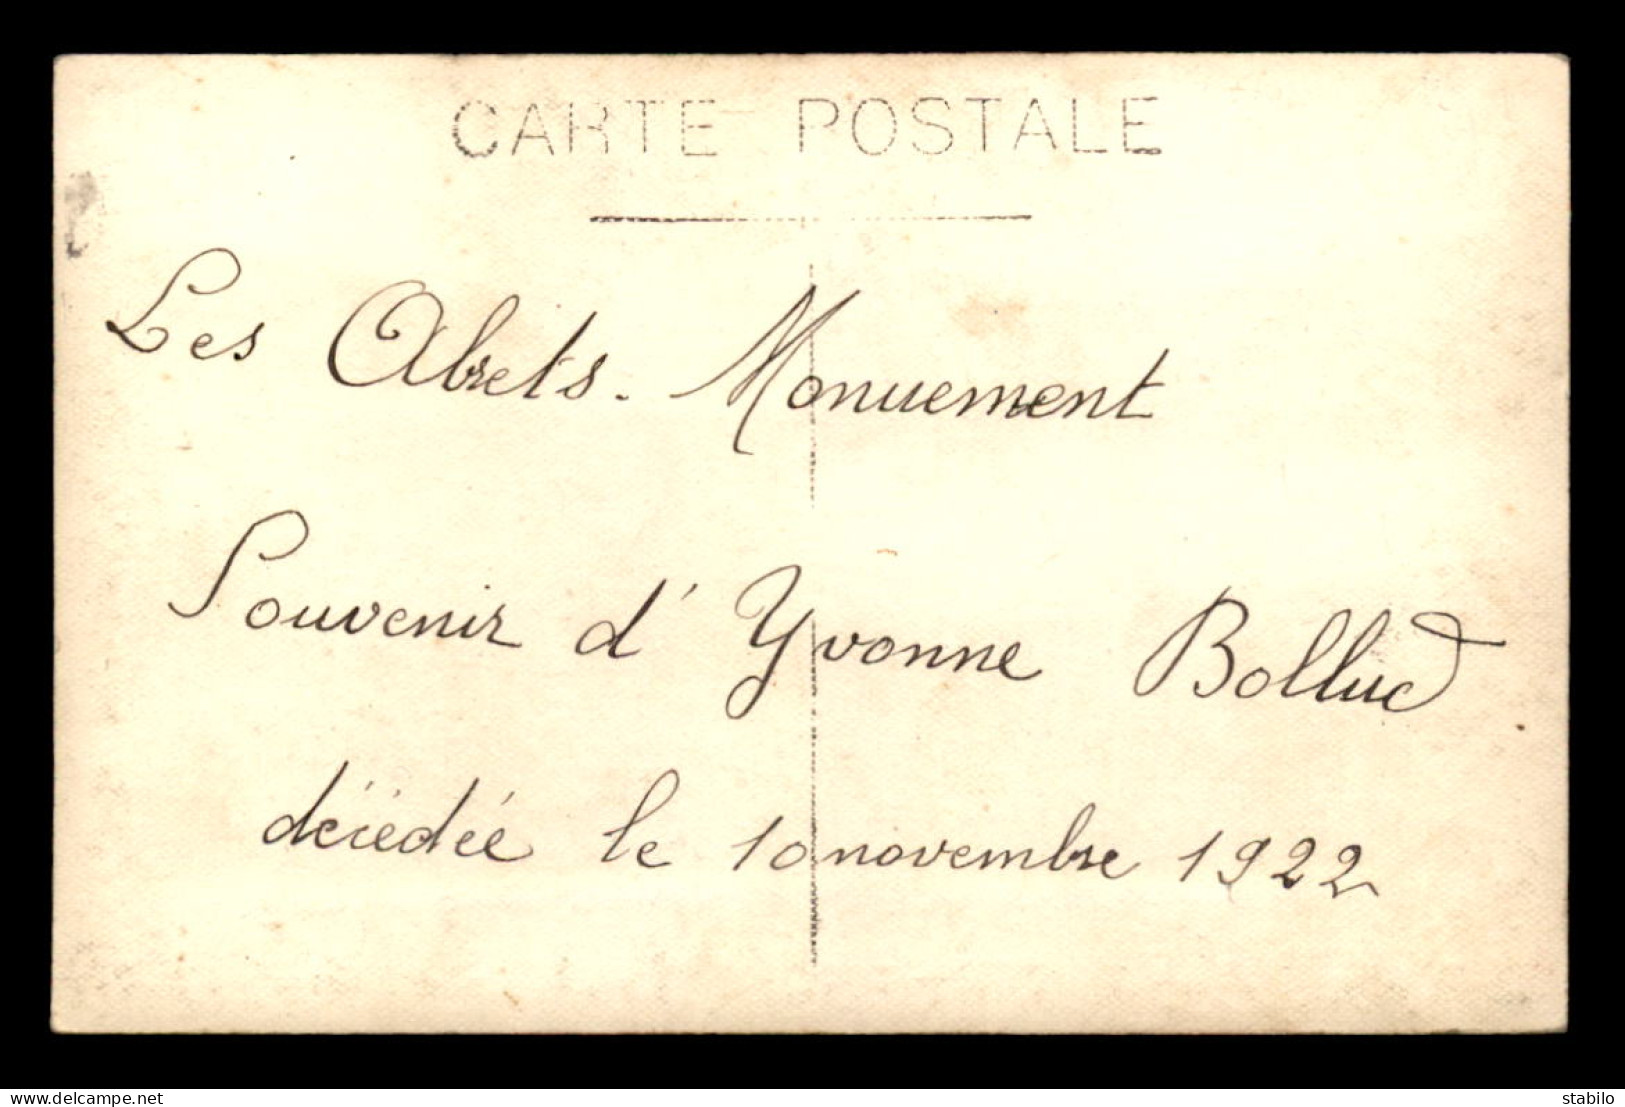 CARTE POSTALE
Les Abrets. Monuement
Souvenir d'Yvonne Bollud
décédée le 10 novembre 1922
www.delcampe.net
stabilo